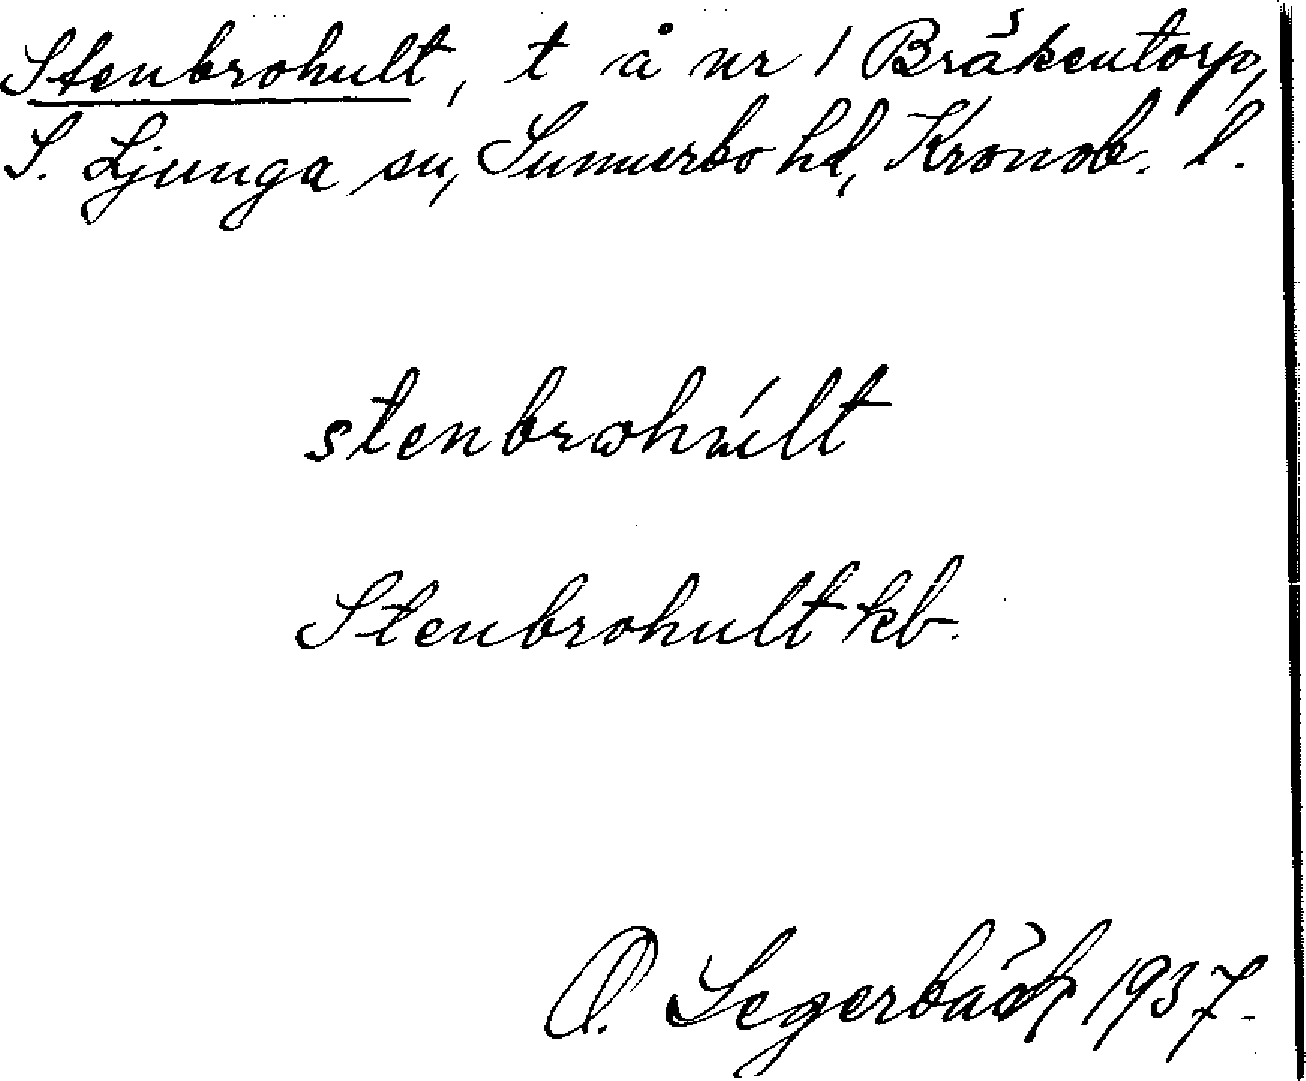 Stenbrohult, t å nr 1 Bräkentorp,
S. Ljunga sn, Sunnerbo hd, Kronob. l.
stenbrωhúlt
Stenbrohult kb.
O. Segerbäck 1937.